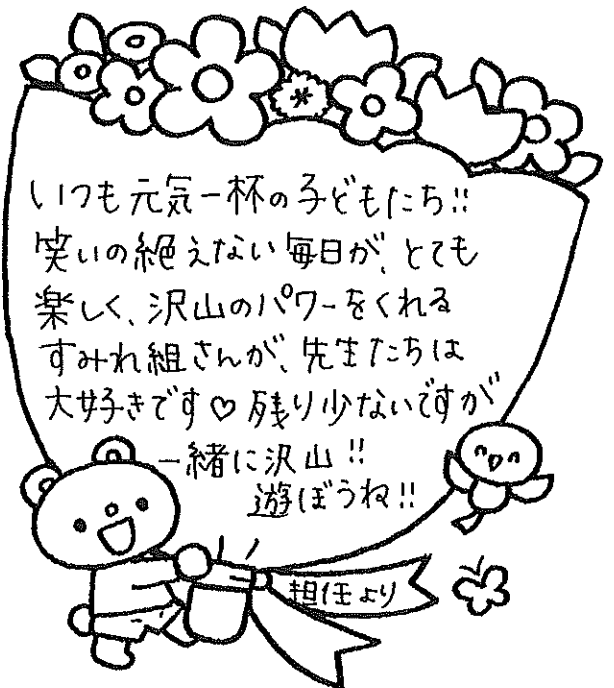 いつも元気一杯の子どもたち!!
笑いの絶えない毎日が、とても
楽しく、沢山のパワーをくれる
すみれ組さんが、先生たちは
大好きです♡残り少ないですが
一緒に沢山!!
遊ぼうね!!
担任より